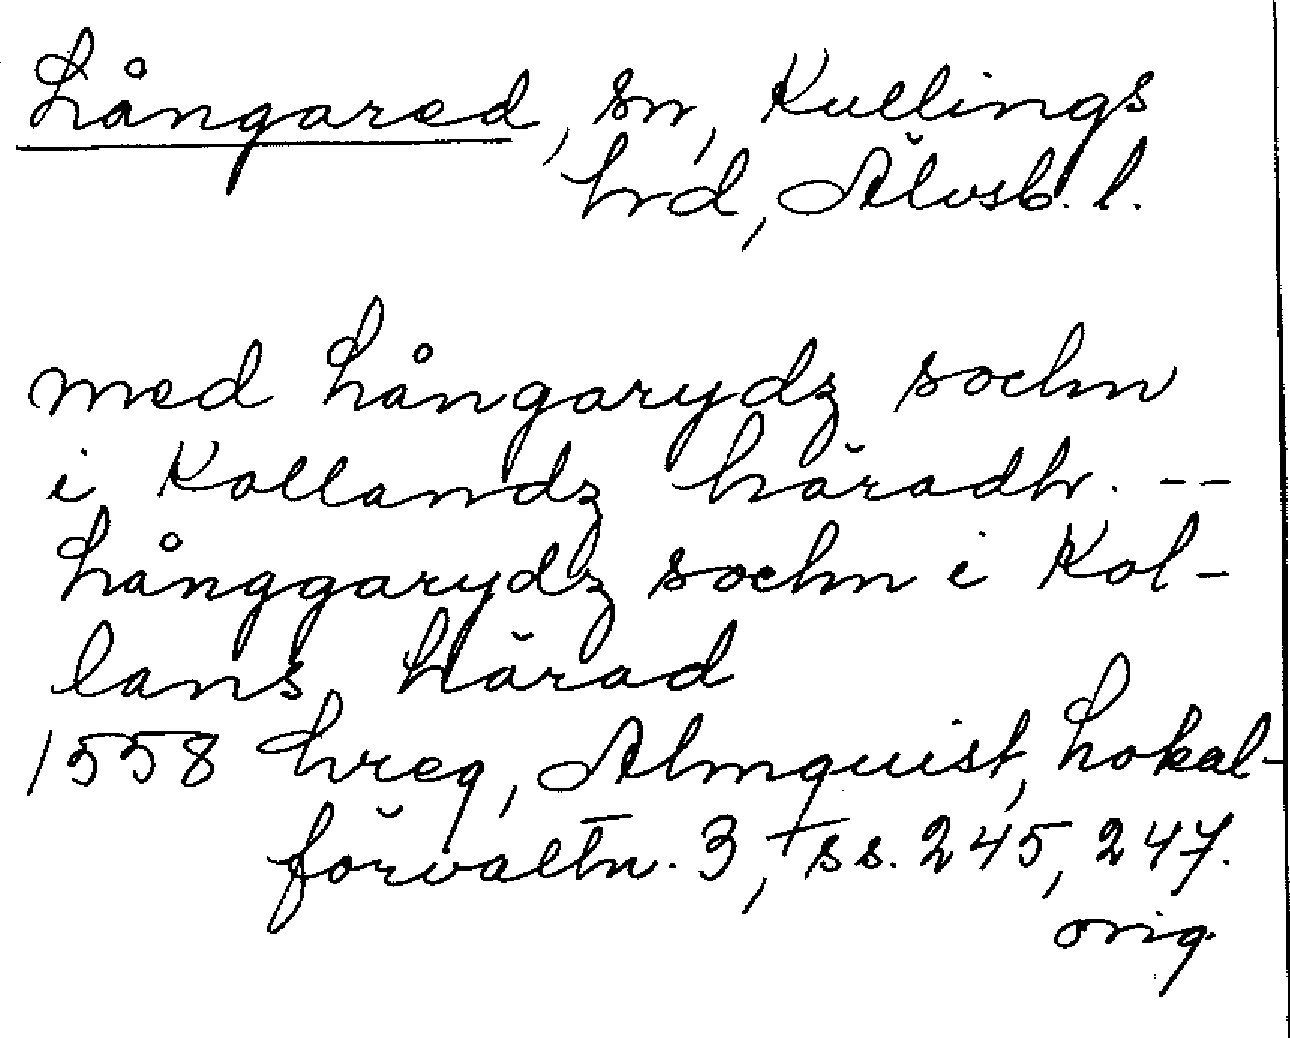 Långared, sn, Kullings
hrd, Älvsb. l.
med Långarydz sochn
i Kollandz häradh. --
Långgarydz sochn i Kol-
lans härad
1558 hreg, Almquist, Lokal-
förvaltn. 3, ss. 245, 247.
orig.